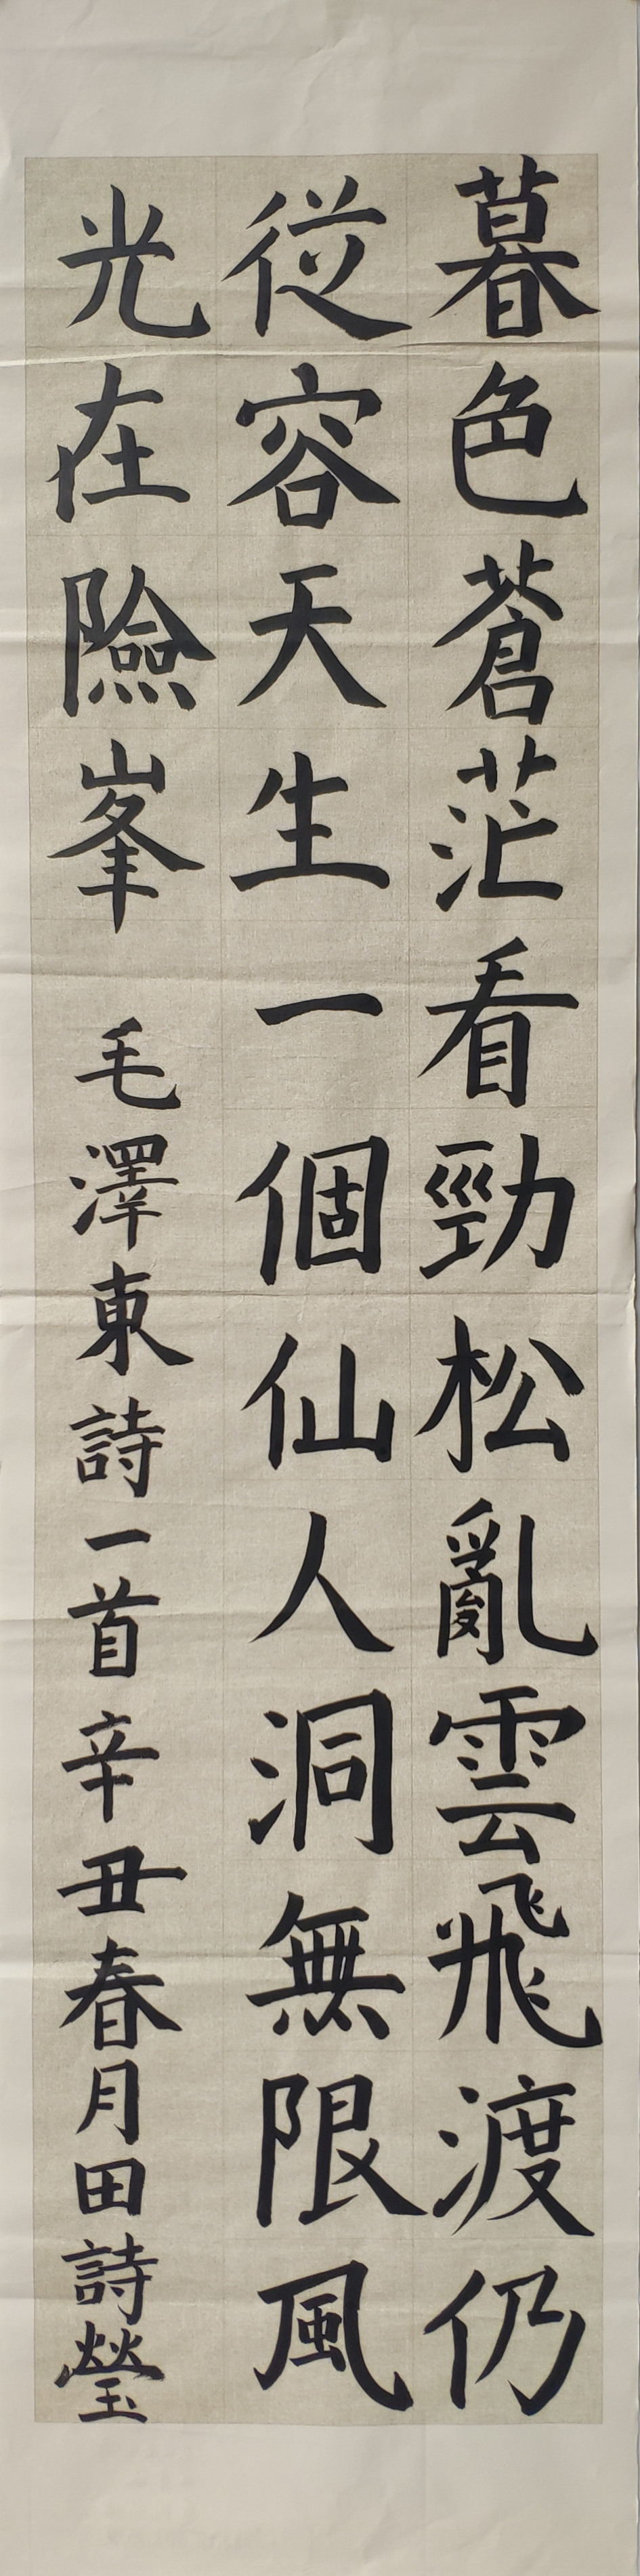 暮色蒼茫看勁松亂雲飛渡仍
從容天生一個仙人洞無限風
光在險峯 毛澤東詩一首辛丑春月田詩瑩